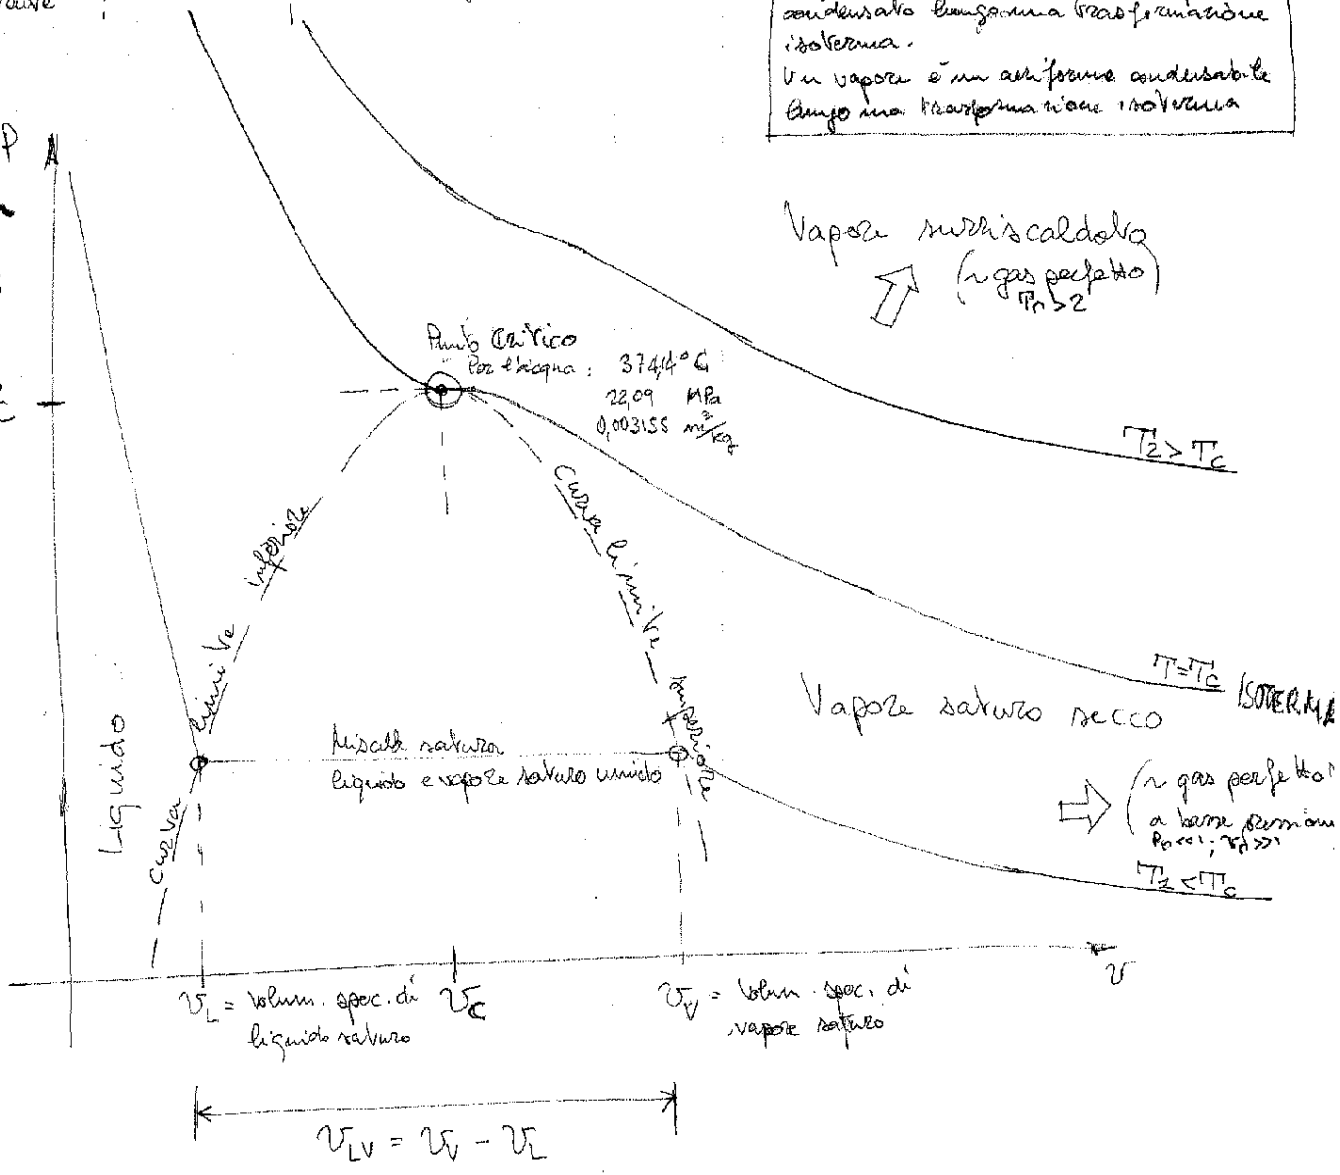 condensato lungo una trasformazione
isoterma.
Un vapore è un aeriforme condensabile
lungo una trasformazione isoterma
P
Vapore surriscaldato
(~ gas perfetto)
Punto Critico
Per l'acqua : 374,4°C
22,09 MPa
0,003155 m³/kg
T₂ > Tc
curva limite inferiore
curva limite superiore
T=Tc ISOTERMA
Vapore saturo secco
Liquido
Miscela satura
liquido e vapore saturo umido
(~ gas perfetto
a basse pressioni
T₁ < Tc
v
v_L = volum. spec. di
liquido saturo
v_C
v_V = volum. spec. di
vapore saturo
v_LV = v_V - v_L